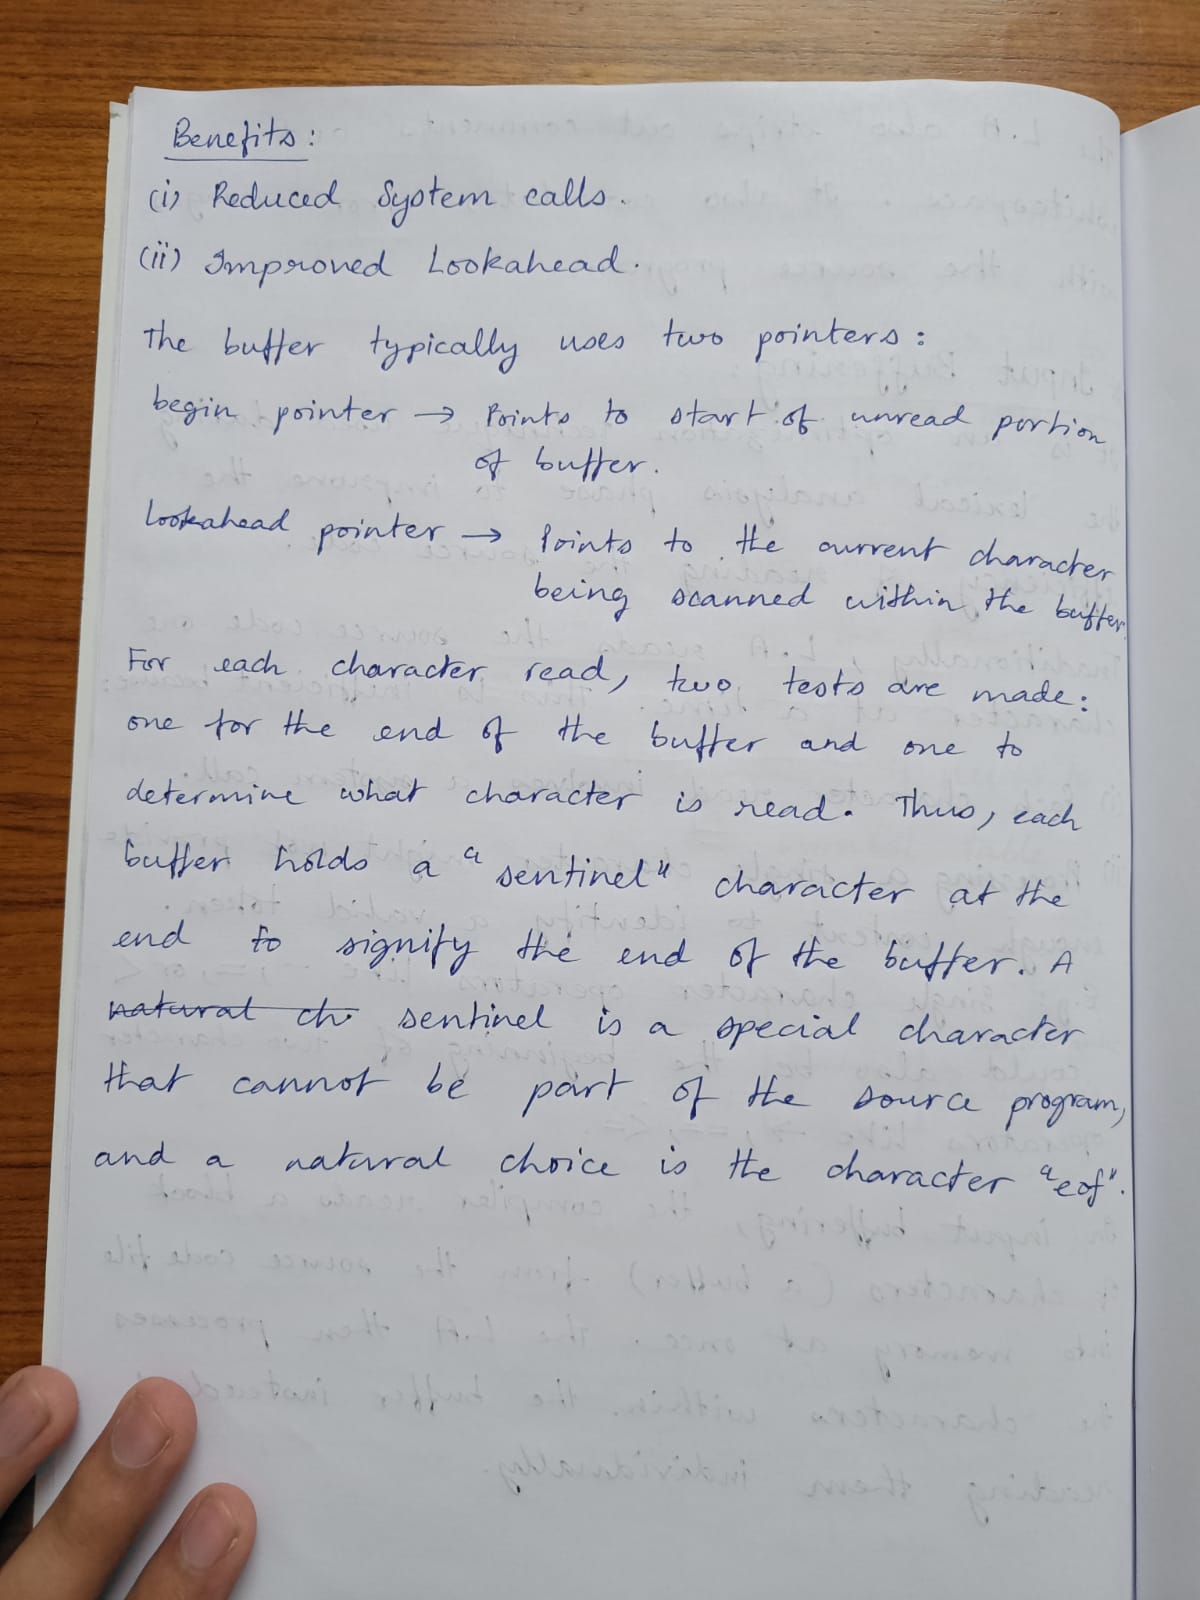 Benefits:
(i) Reduced System calls.
(ii) Improved Lookahead.
The buffer typically uses two pointers:
begin pointer → Points to start of unread portion
of buffer.
Lookahead pointer → Points to the current character
being scanned within the buffer.
For each character read, two tests are made:
one for the end of the buffer and one to
determine what character is read. Thus, each
buffer holds a "sentinel" character at the
end to signify the end of the buffer. A
natural ch sentinel is a special character
that cannot be part of the source program,
and a natural choice is the character "eof".